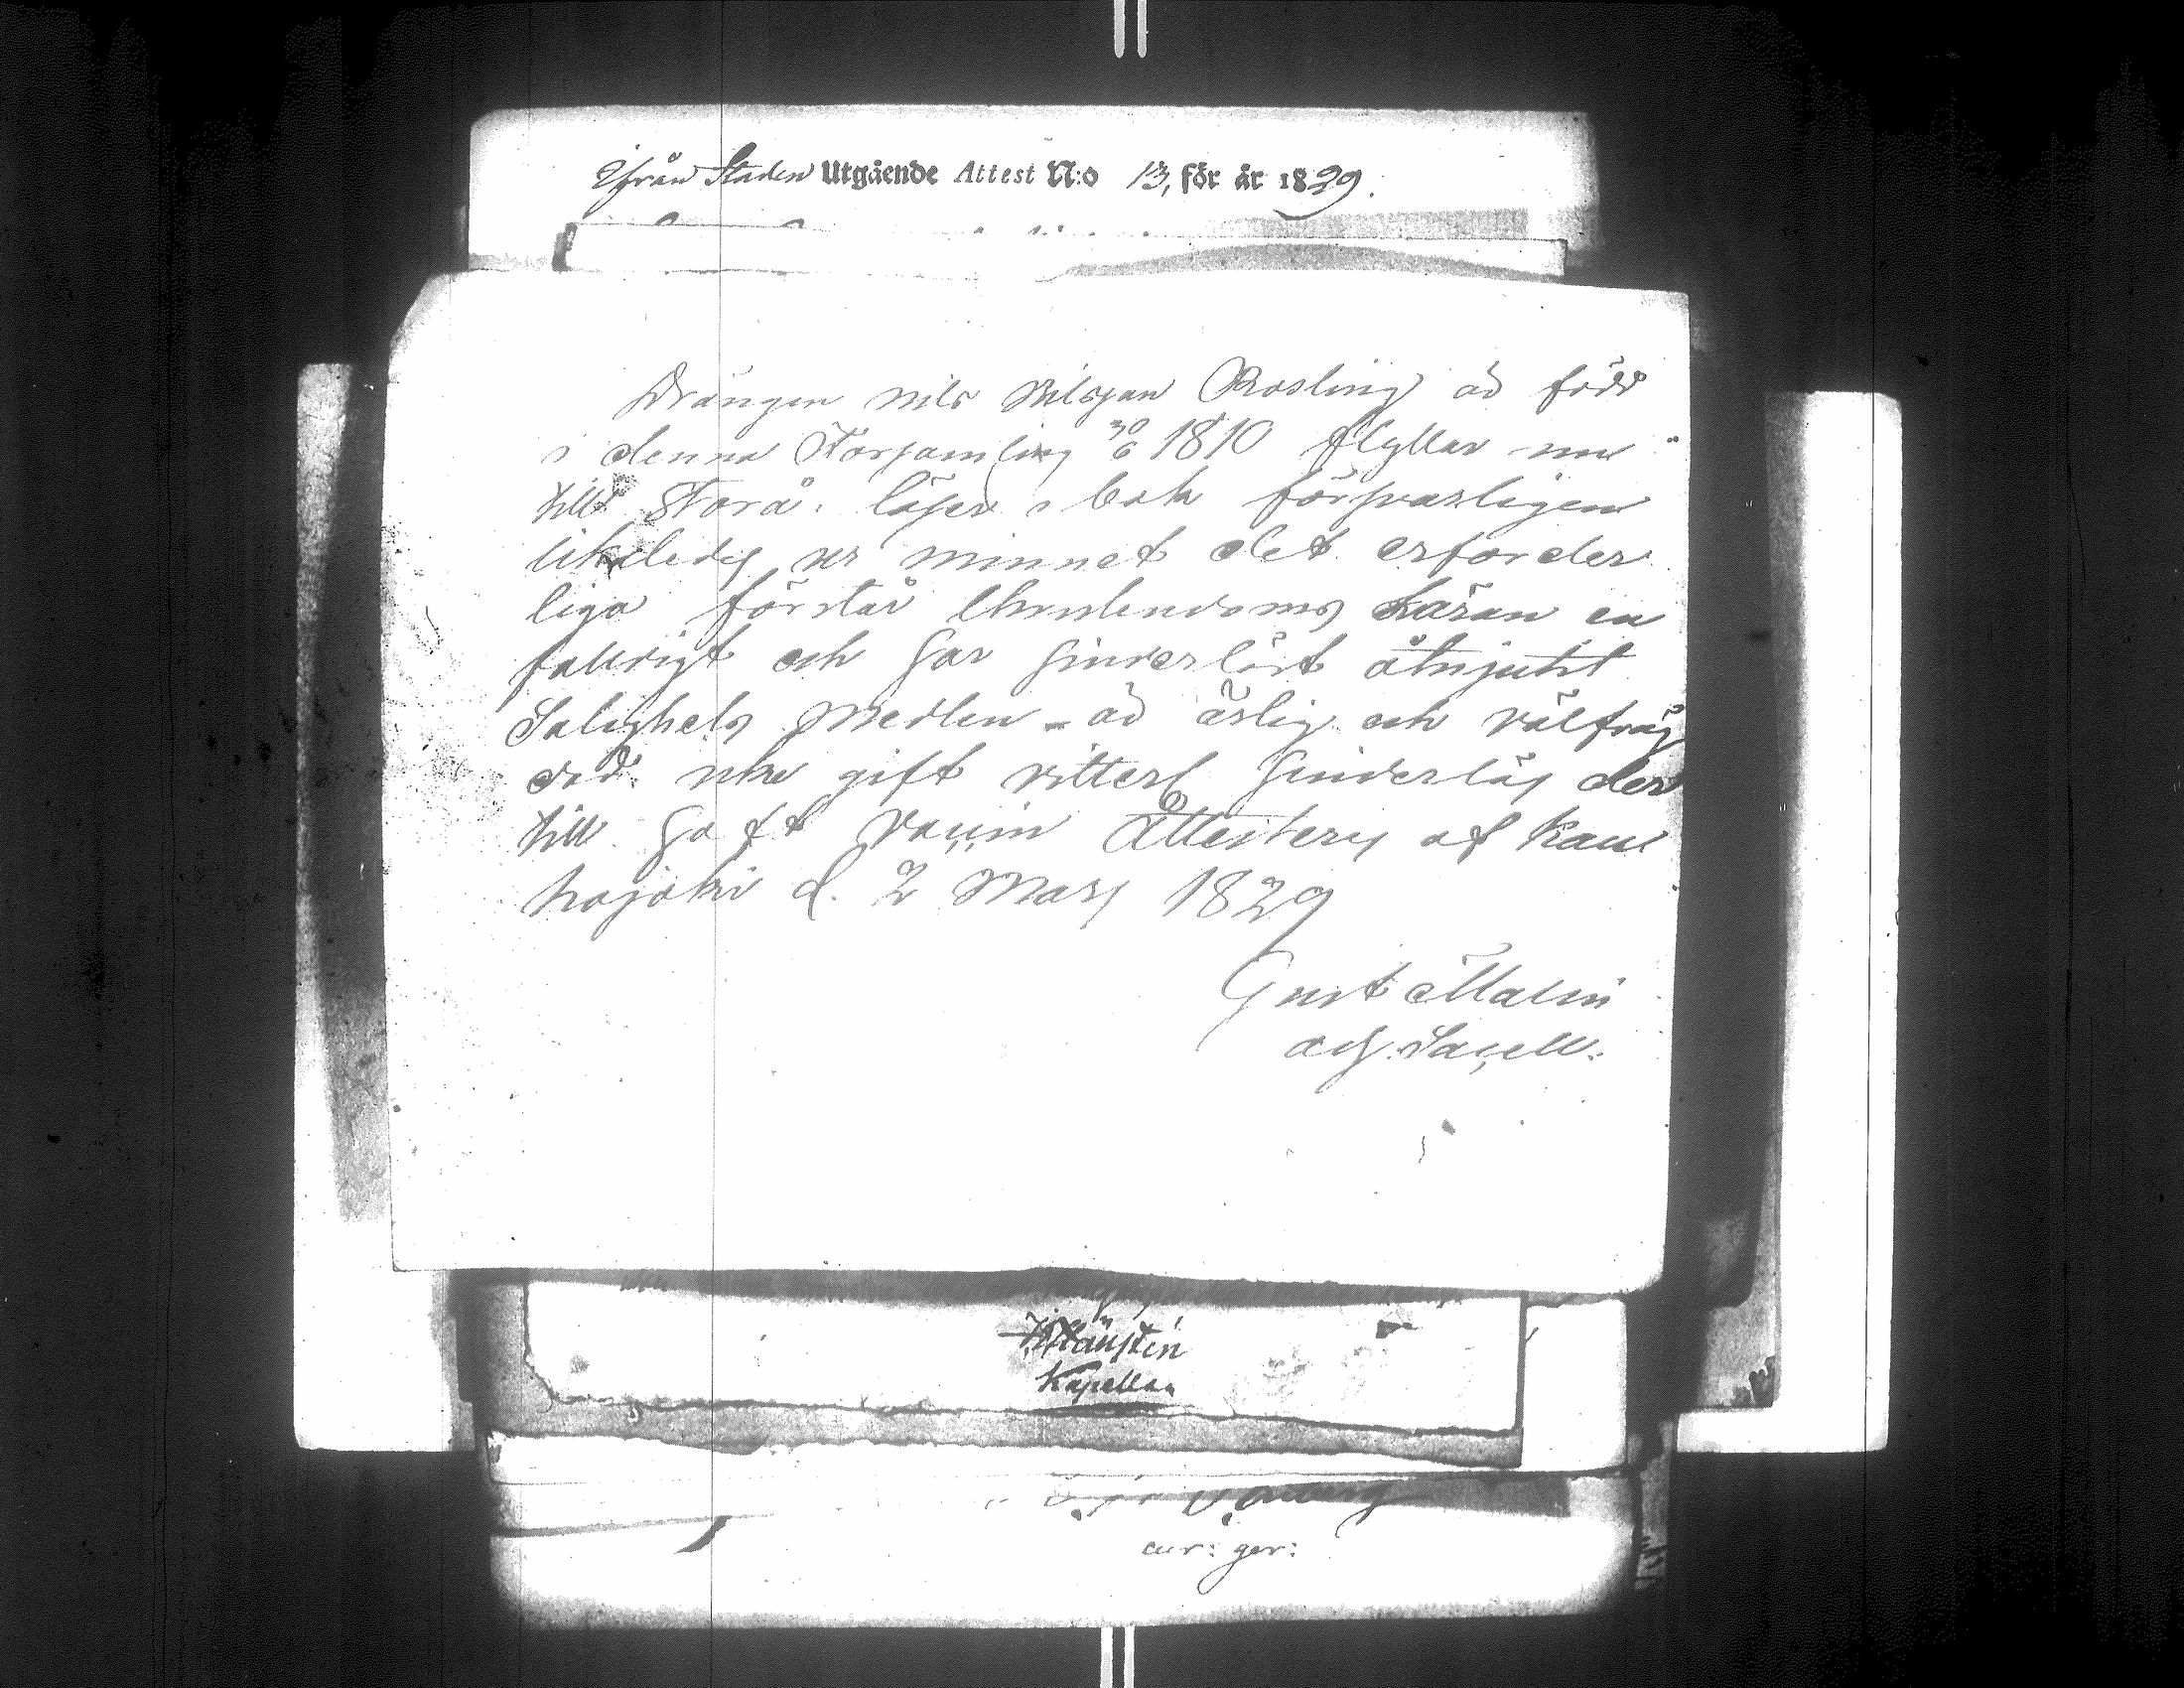 ifrån Staden Utgående Attest N:o 13, för år 1829.
Drängen Nils Nilsson Rosling är född
i denna Församling 30/6 1810 flyttar nu
till Storå. läser i bok försvarligen
likaledes ur minnet det erforder
liga förstår Christendoms Läran en
faldigt och har hinderlöst åtnjutit
Salighets Medlen är ärlig och välfräj
dad. icke gift vitterl hinderlös der
till haft Attesteras af Kau
hajoki d. 2 Mars 1829
Gust Malin
adj. Sacell.
Kapellan
cur: ger: